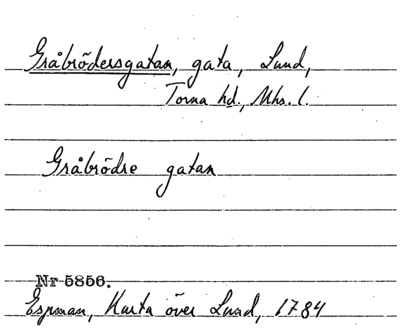 Gråbrödersgatan, gata, Lund,
Torna hd., Mhs. l.
Gråbrödre gatan
Nr 5856.
Espman, Karta över Lund, 1784